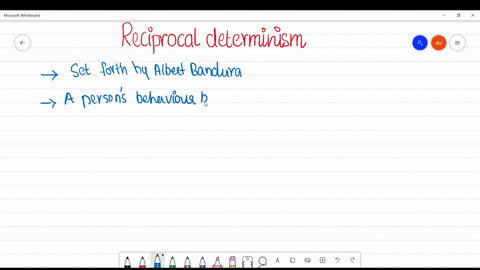 Microsoft Whiteboard
Reciprocal determinism
AV
→ Set forth by Albert Bandura
→ A person's behaviour b